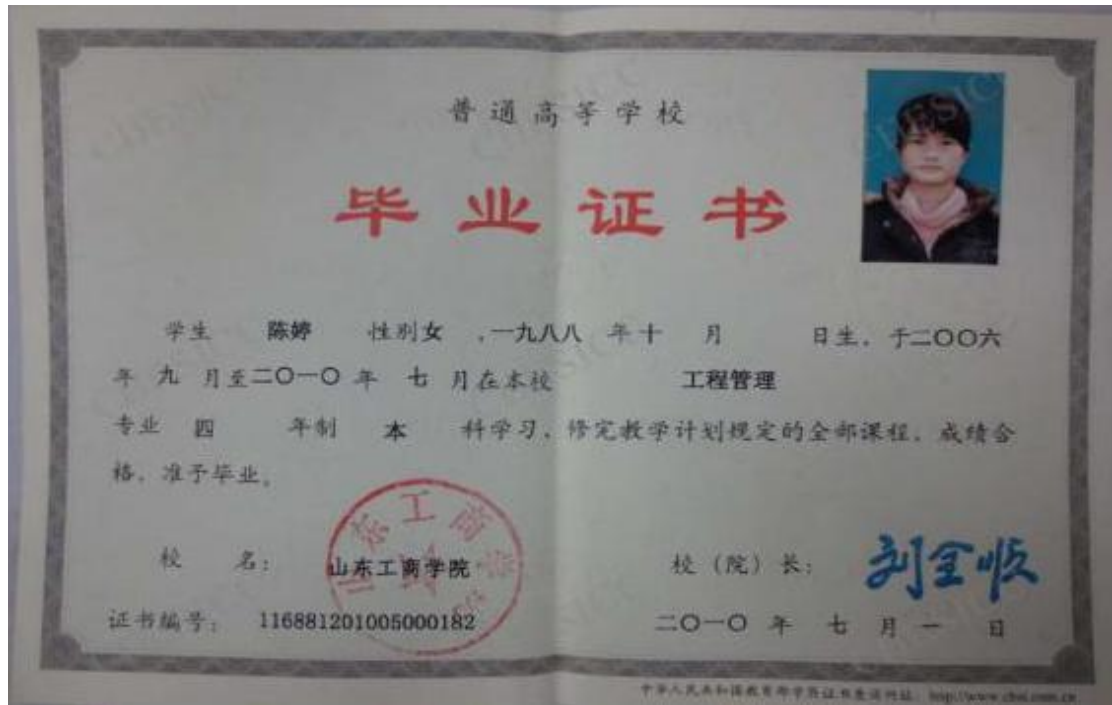 普通高等学校
毕业证书
学生 陈婷 性别女 ，一九八八 年十 月 日生，于二〇〇六
年 九 月至二〇一〇 年 七 月在本校 工程管理
专业 四 年制 本 科学习，修完教学计划规定的全部课程，成绩合
格，准予毕业。
山东工商学院
校 名： 山东工商学院
校（院）长： 刘全顺
证书编号： 116881201005000182
二〇一〇 年 七 月 一 日
中华人民共和国教育部学历证书查询网址：http://www.chsi.com.cn